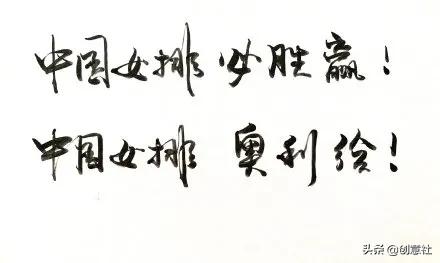 中国女排 必胜赢！
中国女排 奥利给！
头条 @创意社